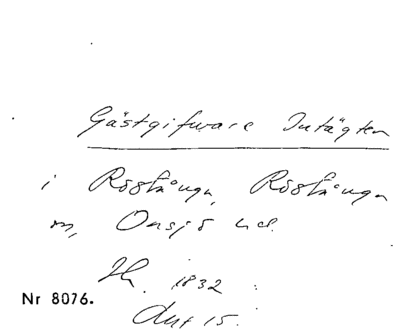 Gästgifware Intägten
i Röstånga, Röstånga
sn, Onsjö hd.
Th. 1832
Nr 8076.
Aut 15.